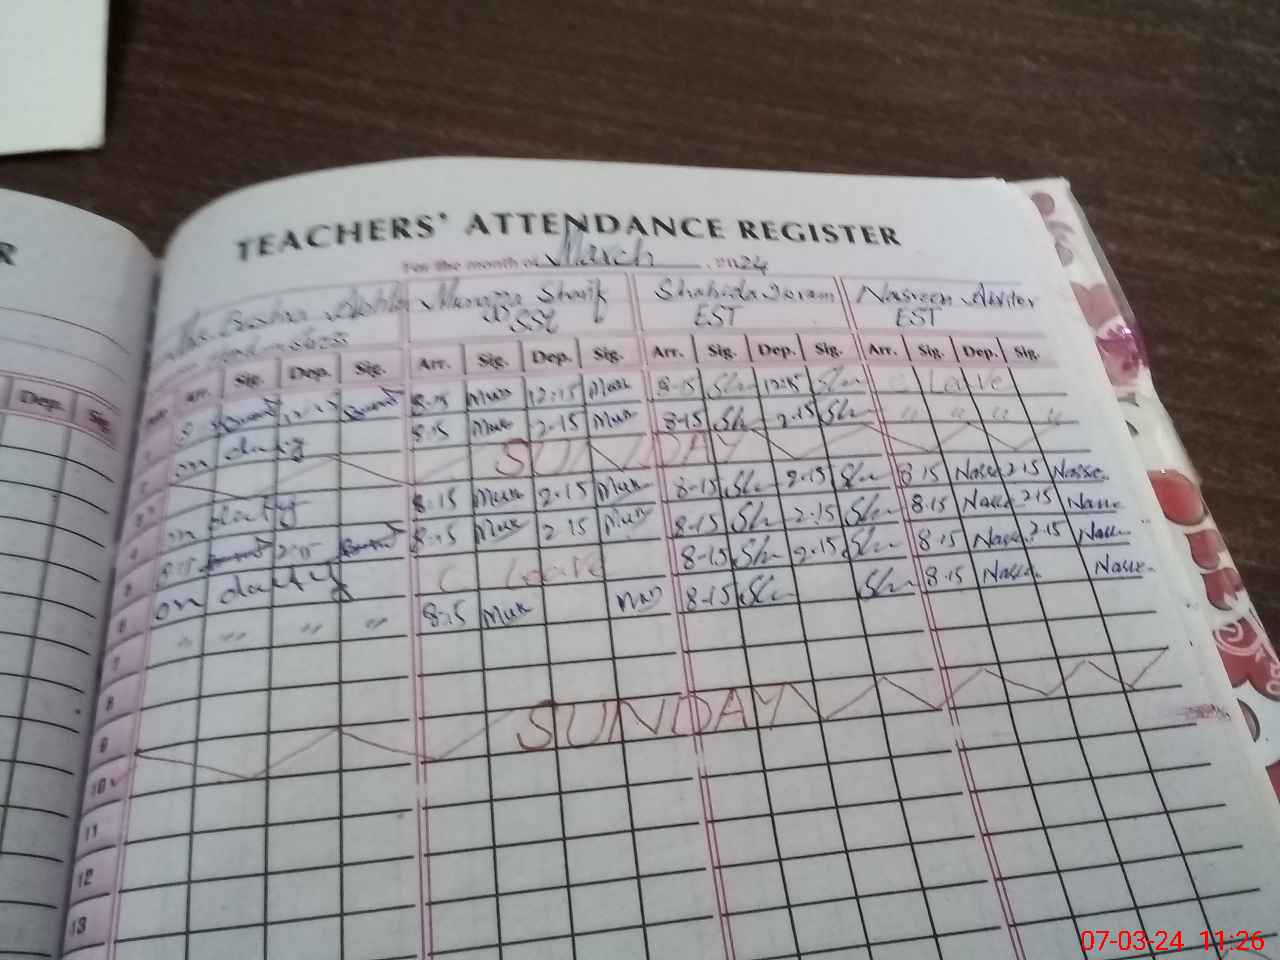 TEACHERS' ATTENDANCE REGISTER
R
For the month of March 2024
Sharif Shahida Ikram Nasreen Akhter
SST EST EST
Dep. Sig.
Arr. Sig. Dep. Sig. Arr. Sig. Dep. Sig. Arr. Sig. Dep. Sig. Arr. Sig. Dep. Sig.
8-15 Mun 12:15 Mun 8-15 Sh 12:15 Sh C Leave
1 on duty 8:15 Mun 2-15 Mun 8-15 Sh 2-15 Sh " " " "
2 SUNDAY
3 on duty 8:15 Mun 2-15 Mun 8-15 Sh 2-15 Sh 8 15 Nasre 2 15 Nasre
4 8:15 2:15 8:15 Mun 2 15 Mun 8-15 Sh 2:15 Sh 8-15 Nasre 2 15 Nasre
5 on duty C Leave 8-15 Sh 2-15 Sh 8 15 Nasre 2-15 Nasre
6 " " " " 8:15 Mun Mun 8-15 Sh Sh 8-15 Nasre Nasre
7
8
9 SUNDAY
10
11
12
13
07-03-24 11:26